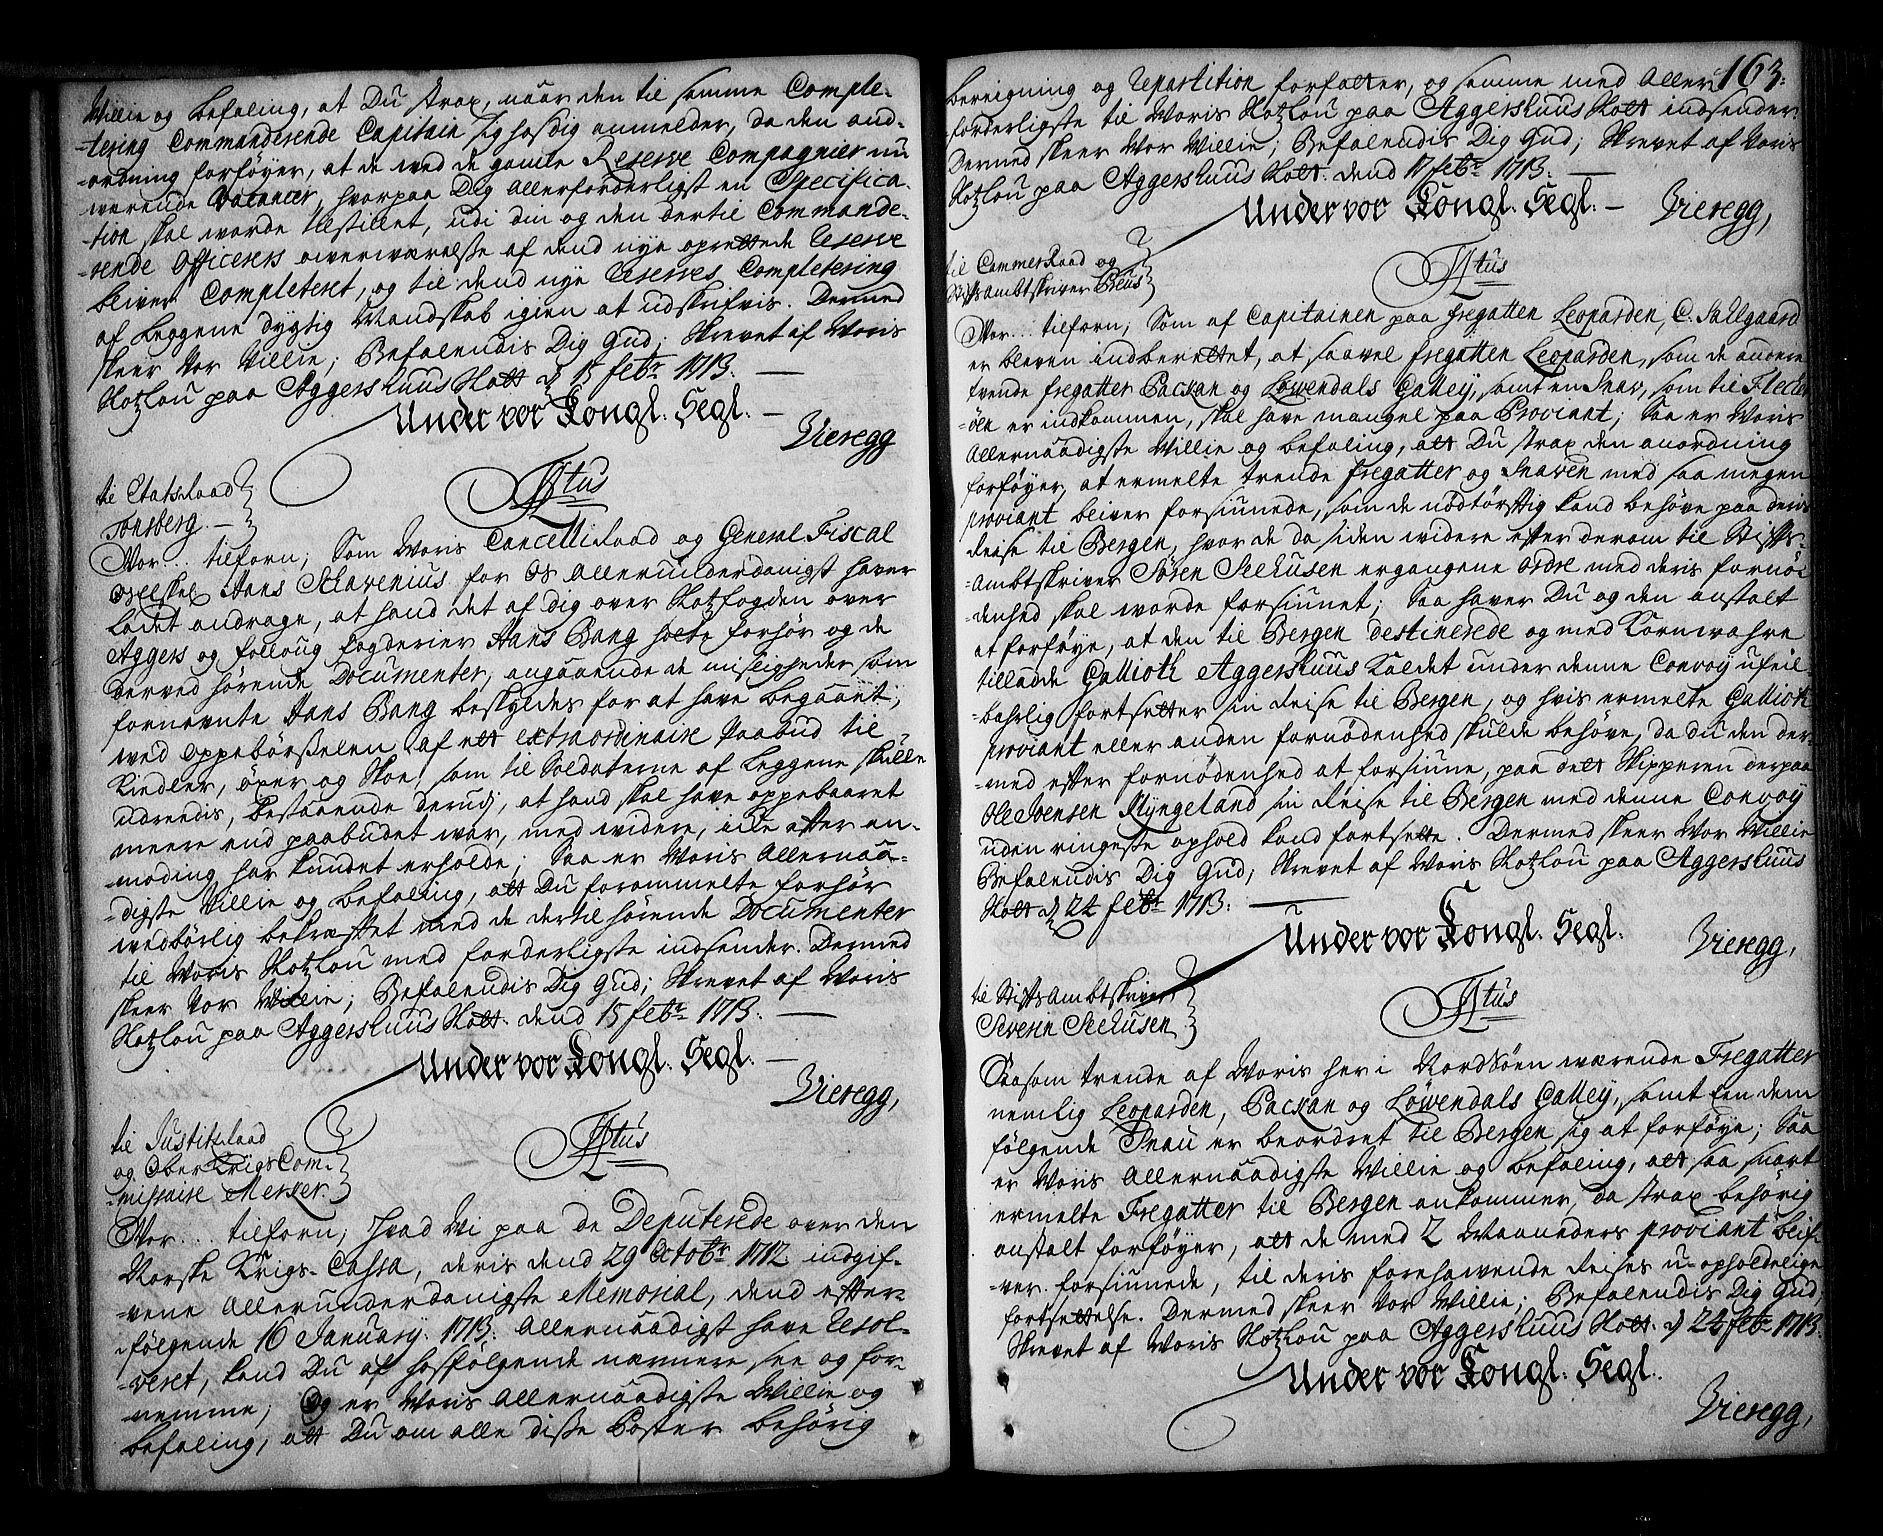 Willie og befaling, at Du strax, naar den til samme Comple-
-tering Commanderende Capitain sig hos dig anmelder, da den and-
-ordning forføyer, at de ved de gamle Reserve Compagnier nu
værende Vacancer, hvorpaa Dig allerforderligst en Specifica-
-tion skal worde tilstillet, udi din og den dertil Commande-
-rende Officerers overværelse af dend nye oprettede Reserve
bliver Completeret, og til dend nye Reserves Completering
af Leggene dygtig Mandskab igien at udskrifvis. Dermed
skeer Vor Villie; Befalendis Dig Gud; Skrevet af Voris
Slotzlou paa Aggershuus Slott d 15 febr 1713.
Under vor Kongl. Segl.
Vieregg
til Etatsraad
Tonsberg.
Ittus
Vor... tilforn; Som Woris Cancelliraad og General Fiscal
Velskel Hans Schavenius for Os Allerunderdanigst haver
ladet andrage, at hand det af dig over Slotzfogden over
Aggers og Folloug fogderier Hans Bang holte forhør og de
derved hørende Documenter, angaaende de misligheder som
fornevnte Hans Bang beskyldes for at have begaaet,
ved oppebørßelen af ett extraordinaire Paabud til
Kiedler, øxer og Skoe, som til Soldaterne af Leggene skulle
udredis, bestaaende derudj, at hand skal have oppebaaret
meere end paabudet war, med widere, icke efter an-
-moding har kundet erholde; Saa er Woris Allernaa-
-digste Villie og befaling, att Du forommelte forhør
wedbørlig bekræftet med de dertil hørende Documenter
til Woris Slotzlou med forderligste indsender. Dermed
skeer Vor Willie; Befalendis Dig Gud; Skrevet af Woris
Slotzlou paa Aggershuus Slott. dend 15 febr 1713.
Under vor Kongl. Segl.
Vieregg,
til Justitzraad
og Ober KrigsCom-
missaire Merker.
Ittus
Vor... tilforn; Hvad Wi paa de Deputerede over den
Norske Krigs-Cassa, deris dend 29 Octobr 1712 indgif-
-vene Allerunderdanigste Memorial, dend effter-
følgende 16 January. 1713. Allernaadigst have Resol-
-veret, kand Du af hosfølgende nærmere see og for-
-nemme; Og er Woris Allernaadigste Willie og
befaling, att Du om alle disse Poster behørig
163.
bereigning og Repartition forfatter, og samme med Aller-
forderligste til Woris Slotzlou paa Aggershuus Slott indsender
Dermed skeer Vor Willie; Befalendis Dig Gud; Skrevet af Voris
Slotzlou paa Aggershuus Slott. dend 17 febr 1713.
Under vor Kongl. Segl.
Vieregg,
til CammerRaad og
StiftsAmbtskriver Preus
Ittus
Vor... tilforn; Som af Capitainen paa Fregatten Leoparden, C. Sallgaard
er bleven indberettet, at saavel fregatten Leoparden, som de andere
tvende fregatter Packan og Løwendals Galley, samt en Snav, som til Flecker
-öen er indkommen, skal have mangel paa Proviant; Saa er Woris
Allernaadigste Willie og befaling, att Du strax den anordning
forføyer, at ermelte trende fregatter og Snaven med saa megen
proviant bliver forsiunede, som de nødtørftig kand behøve paa deris
Reise til Bergen, hvor de da siden widere efter derom til Stifts-
-ambtskriver Søren Seehusen ergangene ordre med deris fornö-
-denhed skal worde forsiunet; Saa haver Du og den anstalt
at forføye, at den til Bergen destinerede og med Kornwahre
tilladde Gallioth Aggershuus kaldet under denne Convoy ufeil-
-bahrlig fortsetter sin Reise til Bergen, og hvis ermelte Gallioth
proviant eller anden fornødenhed skulde behøve, da du den der-
-med efter fornødenhed at forsiune, paa dett Skipperen derpaa
Ole Svensen Klyngeland sin Reise til Bergen med denne Convoy
uden ringeste ophold kand fortsette. Dermed skeer Vor Willie
Befalendis Dig Gud, Skrevet af Woris Slotzlou paa Aggershuus
Slott d 24 febr 1713.
Under vor Kongl. Segl.
Vieregg,
til StiftsAmbtskriver
Severin Seehusen
Ittus
Saasom trende af Woris her i Nordsøen wærende Fregatter
nemlig Leoparden, Packan og Løwendals Galley, samt een dem
følgende Snau er beordret til Bergen sig at forføye; Saa
er Woris Allernaadigste Willie og befaling, att saa snart
ermelte Fregatter til Bergen ankommer, da strax behørig
anstalt forføyer, att de med 2 Maaneders proviant blif-
-ver forsiunede, til deris forehawende Reises u-opholdelige
fortsettelse. Dermed skeer Vor Willie; Befalendis Dig Gud;
Skrevet af Woris Slotzlou paa Aggershuus Slott. d 24 febr 1713.
Under vor Kongl. Segl.
Vieregg,